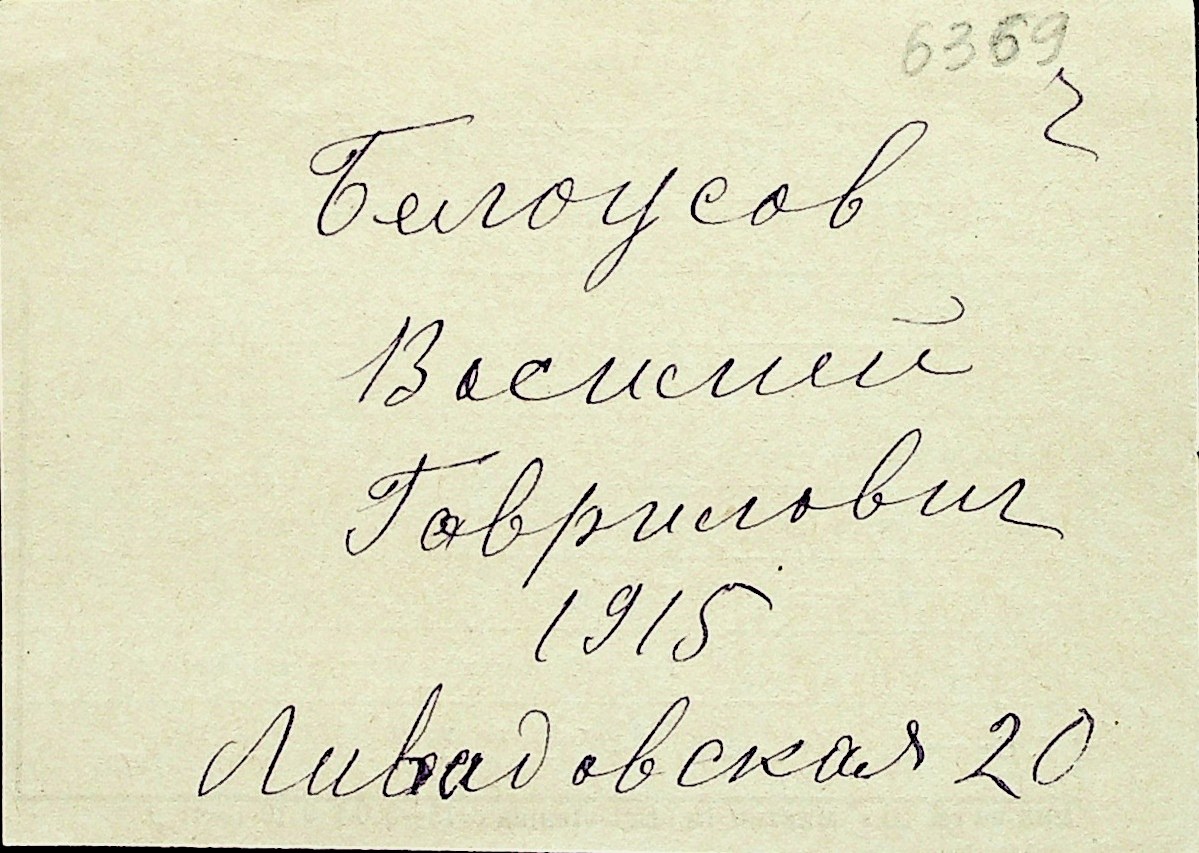 6369
ч
Белоусов
Василий
Гаврилович
1915
Ливадовская 20